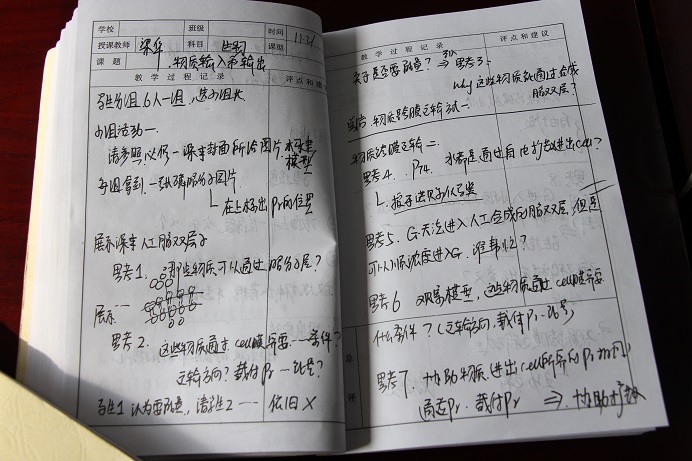 学校 班级 时间 11.21
授课教师 梁华 科目 生物 课型
课题 物质输入和输出
教学过程记录 评点和建议
学生分组6人一组，选小组长
小组活动一.
请参照必修一课本封面所给图片 构建
模型
每组拿到一张磷脂分子图片.
在上标出Pr的位置
展示课本人工脂双层
思考1. 哪些物质可以通过脂分子层？
展示
思考2. 这些物质通过cell膜需要……条件？
运输方向？载体Pr…能量？
学生1 认为要能量，请学生2 … 依旧X
教学过程记录 评点和建议
关于是否要能量？⇒ 思考3.
why 这些物质能通过合成
脂双层？
总结 物质跨膜运输方式一.
物质跨膜运输二.
思考4. P74. 水都是通过自由扩散进出cell？
思考5. G无法进入人工合成的脂双层，但是
可以顺浓度进入
思考6 观察模型，这些物质通过cell膜需要
什么条件？（运输方向，载体Pr…能量）
总评
思考7. 协助物质进出cell所需的Pr相同
通道Pr. 载体Pr ⇒ 协助扩散